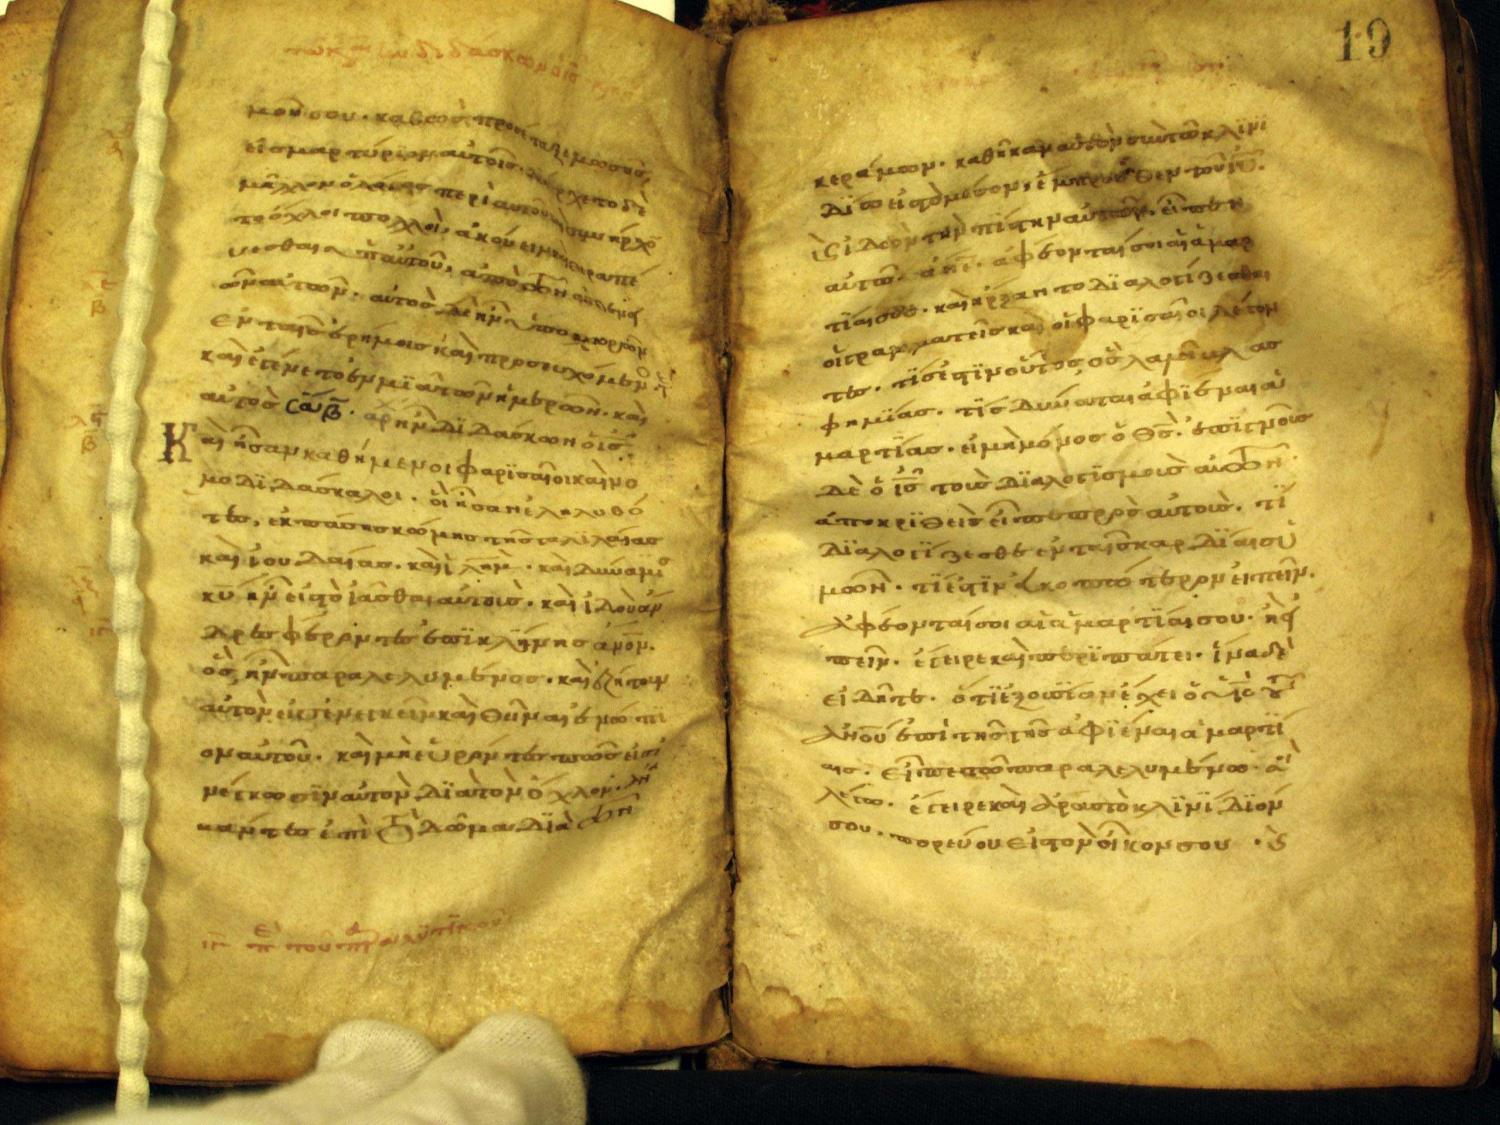 μου σου· καθὼς προσέταξε μωσῆς,
εἰς μαρτύριον αὐτοῖς. διήρχετο δὲ
μᾶλλον ὁ λόγος περὶ αὐτοῦ καὶ συνήρχο
το ὄχλοι πολλοὶ, ἀκούειν καὶ θεραπεύ
εσθαι ὑπ αὐτοῦ, ἀπὸ τῶν ἀσθενει
ῶν αὐτῶν. αὐτὸς δὲ ἦν ὑποχωρῶν
ἐν ταῖς ἐρήμοις καὶ προσευχόμενος
καὶ ἐγένετο ἐν μιᾷ τῶν ἡμερῶν. καὶ
αὐτὸς ἦν διδάσκων ὁ ις
Καὶ ἦσαν καθήμενοι φαρισαῖοι καὶ νο
μοδιδάσκαλοι. οἳ ἦσαν ἐληλυθό
τες, ἐκ πάσης κώμης τῆς γαλιλαίας
καὶ ἰουδαίας. καὶ ιλημ. καὶ δύναμις
κυ ἦν εἰς τὸ ἰᾶσθαι αὐτούς. καὶ ἰδοὺ ἄν
δρες φέροντες ἐπὶ κλίνης ανον.
ὃς ἦν παραλελυμένος. καὶ ἐζήτουν
αὐτὸν εἰσενεγκεῖν καὶ θῆναι ἐνώπι
ον αὐτοῦ. καὶ μὴ εὑρόντες πῶς εἰσε
νέγκωσιν αὐτὸν διὰ τὸν ὄχλον. ἀνα
βάντες ἐπὶ τὸ δῶμα. διὰ τῶν
τοῦ παραλυτικοῦ
19
κεράμων. καθῆκαν αὐτὸν σὺν τῷ κλινι
δίῳ εἰς τὸ μέσον, ἔμπροσθεν τοῦ ιυ.
ϛ ἰδὼν τὴν πίστιν αὐτῶν. εἶπεν
αὐτῷ. ανε. ἀφέονταί σοι αἱ ἁμαρ
τίαι σου. καὶ ἤρξαντο διαλογίζεσθαι
οἱ γραμματεῖς καὶ οἱ φαρισαῖοι λέγον
τες. τίς ἐστιν οὗτος ὃς λαλεῖ βλασ
φημίας. τίς δύναται ἀφιέναι ἁ
μαρτίας. εἰ μὴ μόνος ὁ θς. ἐπιγνοὺς
δὲ ὁ ις τοὺς διαλογισμοὺς αὐτῶν.
ἀποκριθεὶς εἶπε πρὸς αὐτούς. τί
διαλογίζεσθε ἐν ταῖς καρδίαις ὑ
μῶν. τί ἐστιν εὐκοπώτερον εἰπεῖν.
ἀφέονταί σοι αἱ ἁμαρτίαι σου. ἢ εἰ
πεῖν. ἔγειρε καὶ περιπάτει. ἵνα δὲ
εἰδῆτε. ὅτι ἐξουσίαν ἔχει ὁ υἱὸς τοῦ
ανου ἐπὶ τῆς γῆς ἀφιέναι ἁμαρτί
ας. εἶπε τῷ παραλελυμένῳ. σοὶ
λέγω. ἔγειρε καὶ ἆρας τὸ κλινίδιόν
σου. πορεύου εἰς τὸν οἶκόν σου. ϛ